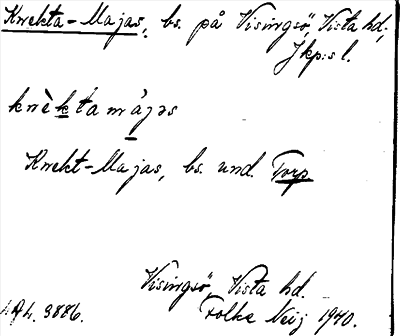 Knekta-Majas, bs. på Visingsö, Vista hd,
Jkp:s l.
knèktamàjəs
Knekt-Majas, bs. und. Torp
Visingsö, Vista hd.
Folke Neij 1940.
3886.